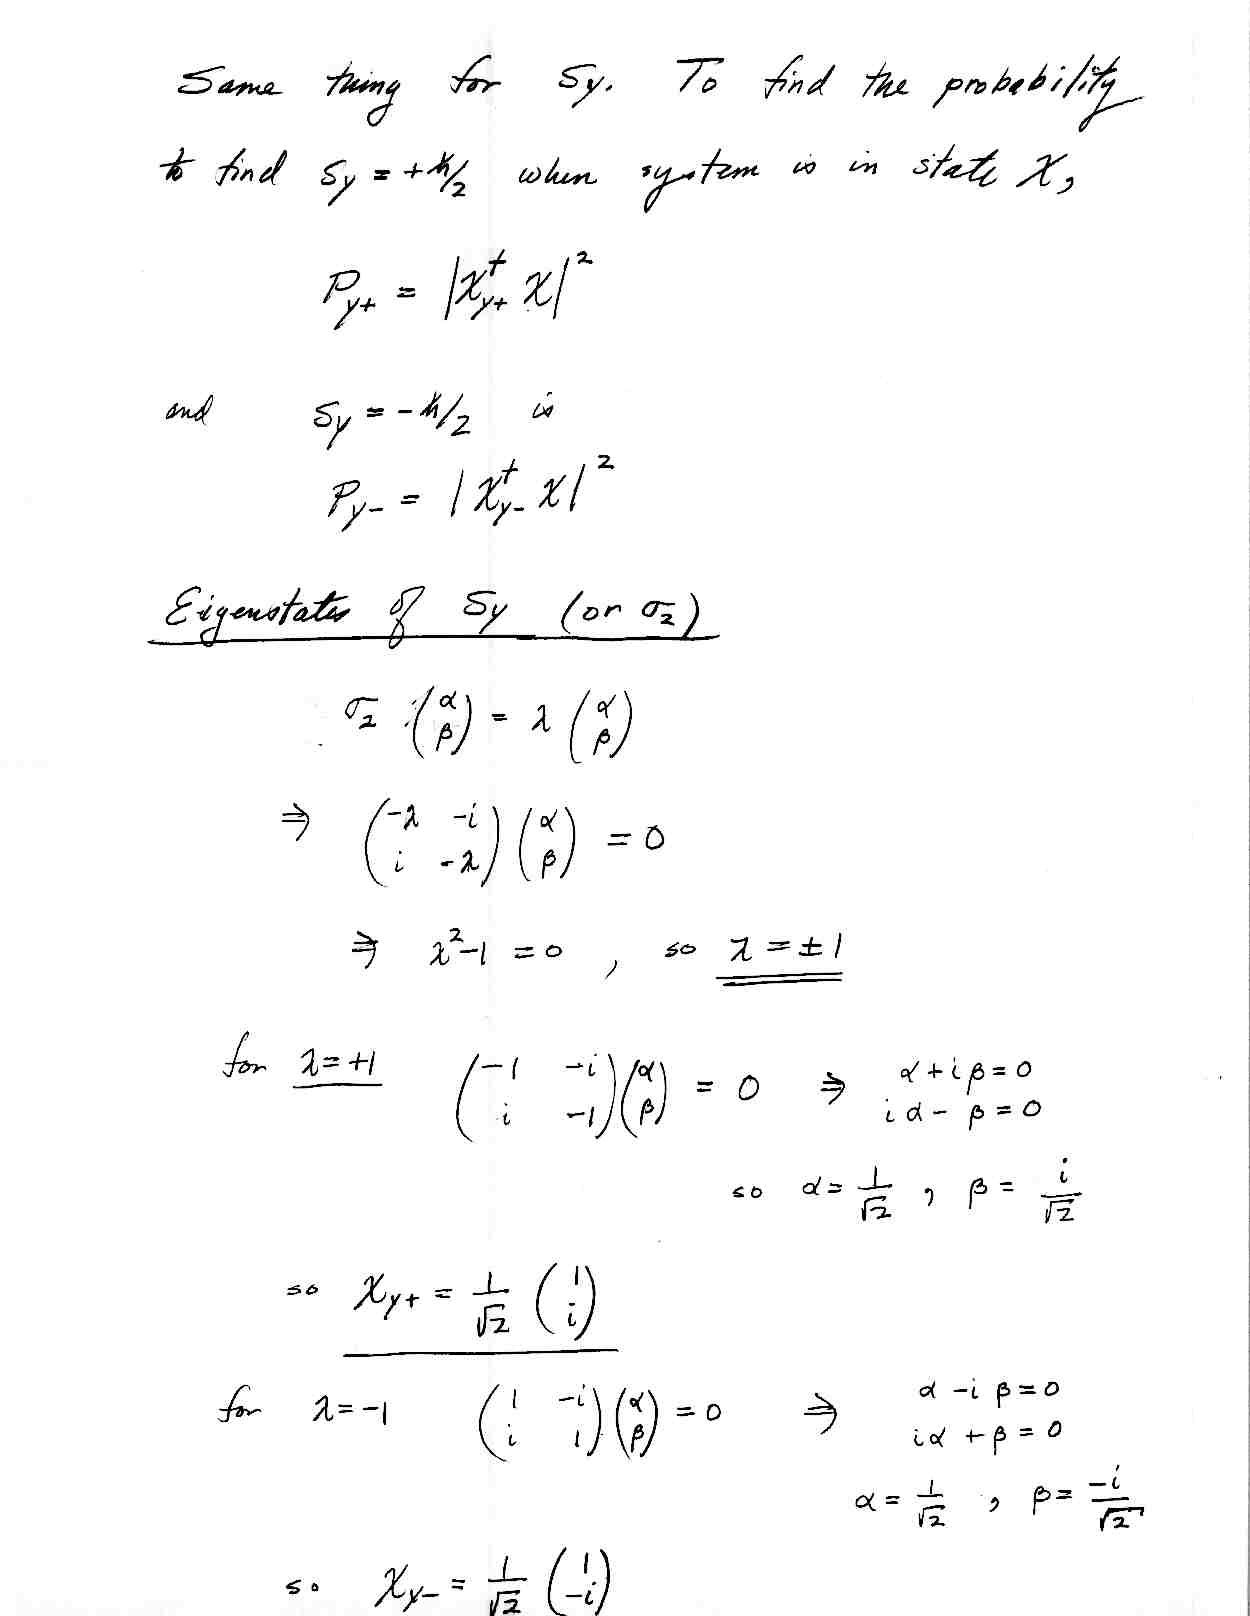 Same thing for Sy. To find the probability
to find Sy = +ħ/2 when system is in state χ,
P_{y+} = |χ†_{y+} χ|²
and Sy = -ħ/2 is
P_{y-} = |χ†_{y-} χ|²
Eigenstates of Sy (or σ₂)
σ₂ (α β) = λ (α β)
⇒ (-λ -i; i -λ) (α β) = 0
⇒ λ²-1 = 0 , so λ = ±1
for λ = +1 (-1 -i; i -1) (α β) = 0 ⇒ α + iβ = 0
iα - β = 0
so α = 1/√2 , β = i/√2
so χ_{y+} = 1/√2 (1 i)
for λ = -1 (1 -i; i 1) (α β) = 0 ⇒ α - iβ = 0
iα + β = 0
α = 1/√2 , β = -i/√2
so χ_{y-} = 1/√2 (1 -i)